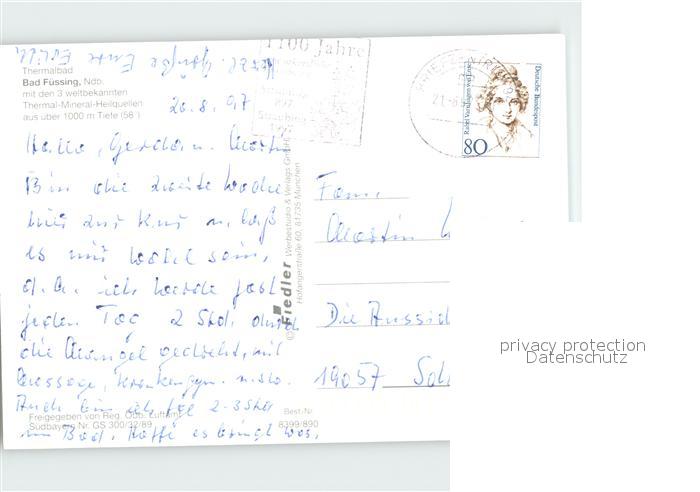 Herzl. Grüße Eure
Thermalbad
Bad Füssing, Ndb.
mit den 3 weltbekannten
Thermal-Mineral-Heilquellen
aus über 1000 m Tiefe (58°)
20.8.97
1100 Jahre
Straubing
1997
BRIEFZENTRUM
21.-8.
Deutsche Bundespost
Rahel Varnhagen von Ense
80
Hallo, Gerda u. Martin
Bin die zweite Woche
hier zur Kur u. laß
es mir wohl sein,
d.h. ich werde fast
jeden Tag 2 Std. durch
die Mangel gedreht, mit
Massage, Krankengym. u.sw.
Auch bin ich für 2-3 Std
im Bad. Hoffe es bringt was.
Fiedler Werbestudio & Verlags GmbH
Hofangerstraße 60, 81735 München
Fam.
Martin
Die Aussic
19057 Sch
Freigegeben von Reg. Obb. Luftamt
Südbayern Nr. GS 300/32/89
Best-Nr.
8399/890
privacy protection
Datenschutz